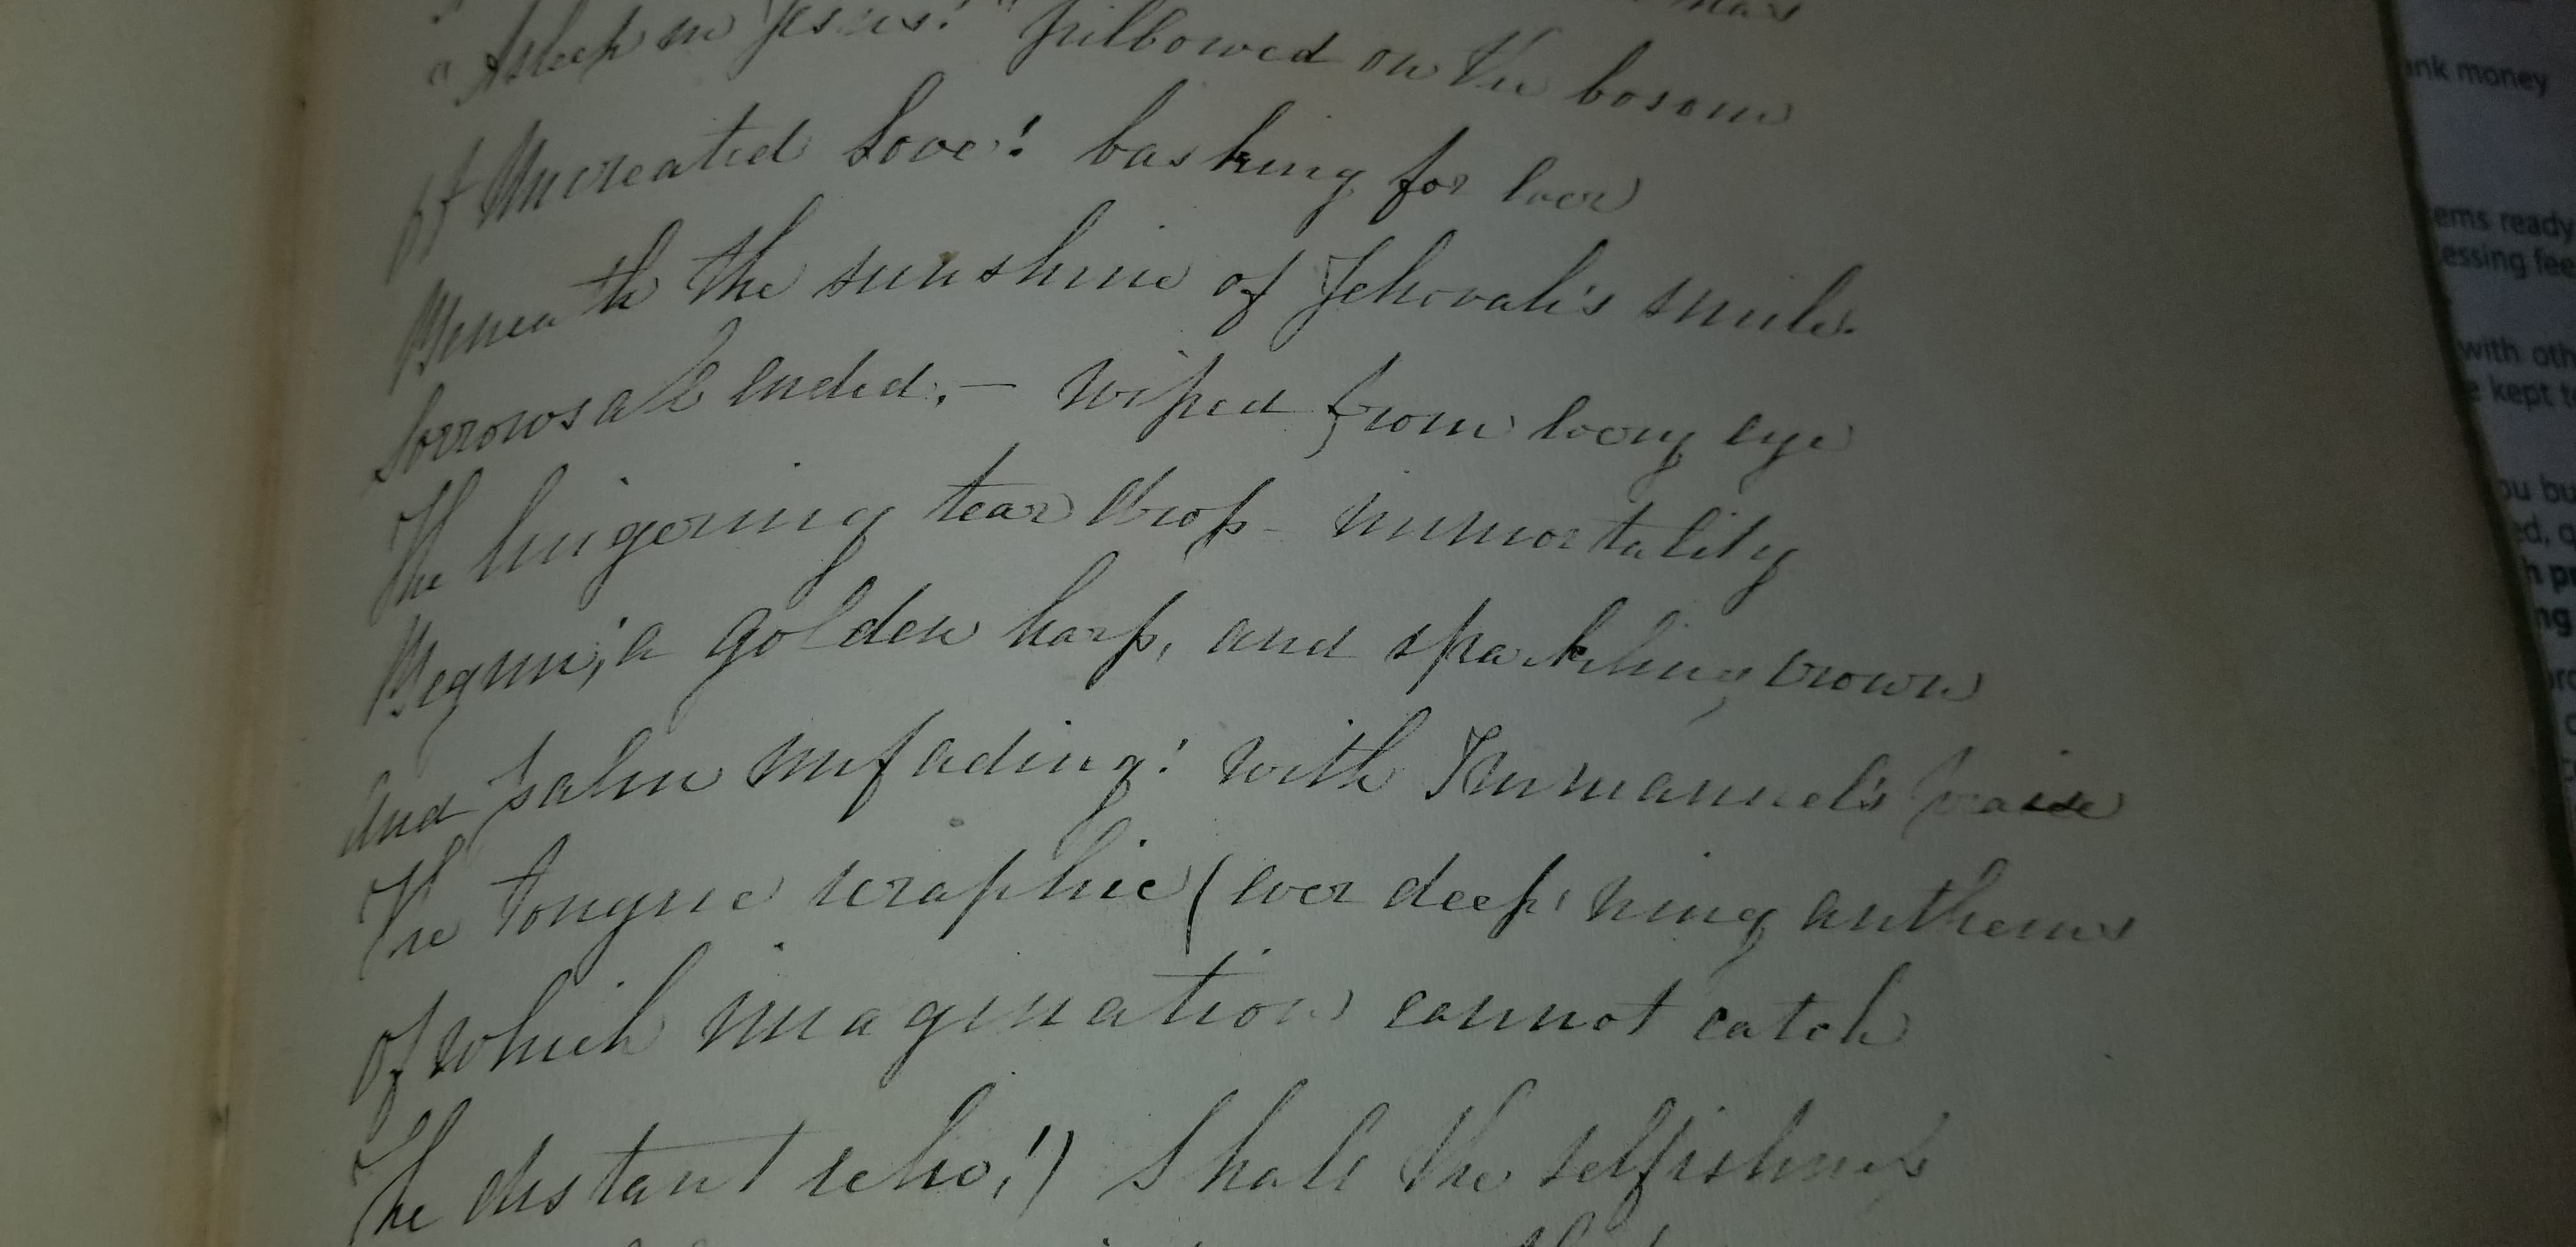 "Asleep in Jesus!" pillowed on the bosom
Of Uncreated Love! basking for ever
Beneath the sunshine of Jehovah's smile.
Sorrows all ended,— wiped from every eye
The lingering tear drop - immortality
Begun; a golden harp, and sparkling crown
And palm unfading! with Immanuel's praise
The tongue seraphic (ever deep'ning anthems
Of which imagination cannot catch
The distant echo!) Shall the selfishness
ank money
ems ready
essing fee
with oth
e kept to
ou bu
ed, q
h pr
ng